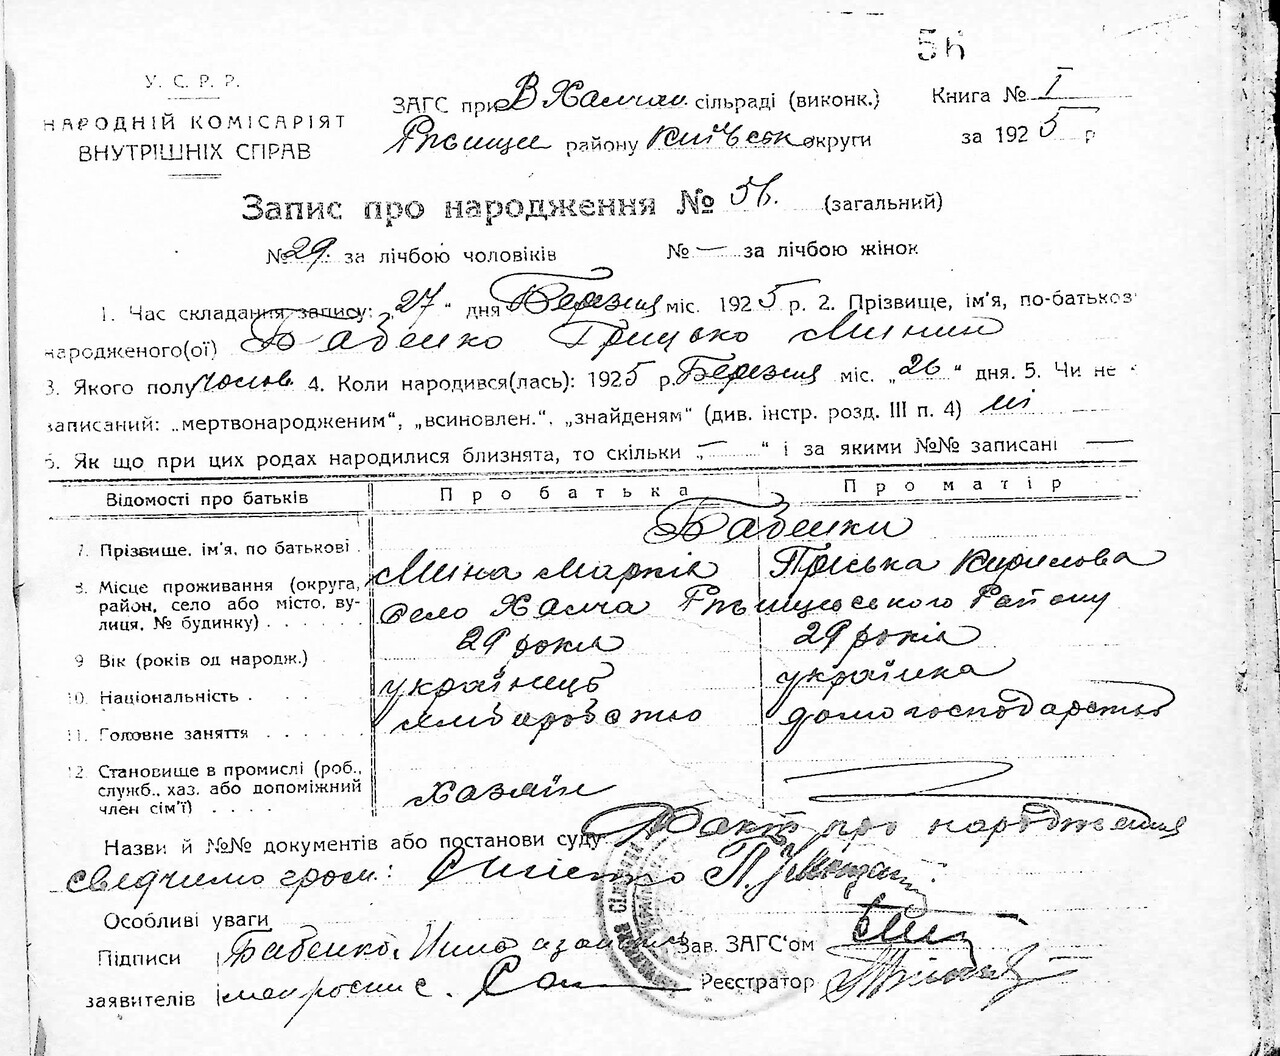 56
У. С. Р. Р.
НАРОДНІЙ КОМІСАРІЯТ
ВНУТРІШНІХ СПРАВ
ЗАГС при В Халчан. сільраді (виконк.)
Ржищів району Київськ округи
Книга № I
за 1925 р
Запис про народження № 56. (загальний)
№ 29. за лічбою чоловіків № — за лічбою жінок
1. Час складання запису: „27“ дня Березня міс. 1925 р. 2. Прізвище, ім'я, по-батькові
народженого(ої) Бабенко Грицько Минин
3. Якого полу чолов. 4. Коли народився(лась): 1925 р. Березня міс. „26“ дня. 5. Чи не
записаний: „мертвонародженим“, „всиновлен.“, „знайденям“ (див. інстр. розд. III п. 4) ні
6. Як що при цих родах народилися близнята, то скільки „—“ і за якими №№ записані —
Відомості про батьків Про батька Про матір
7. Прізвище, ім'я, по батькові . Бабенки
Мина Марків Пріська Кирилова
8. Місце проживання (округа, район, село або місто, вулиця, № будинку) . . . . . . село Халча Ржищівського Району
9 Вік (років од народж.) 29 років 29 років
10. Національність . українець українка
11. Головне заняття хліборобство домогосподарство
12. Становище в промислі (роб., служб., хаз. або допоміжний член сім'ї) . . . . хазяїн
Назви й №№ документів або постанови суду Факт про народження
свідчимо гром:
Особливі уваги
Підписи Бабенко, Зав. ЗАГС'ом
заявителів Реєстратор